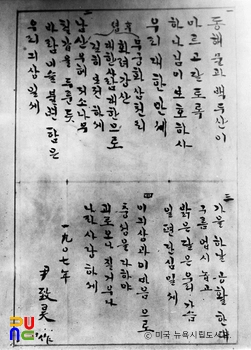 동해물과백두산이
마르고달토록
하나님이보호하사
우리대한만세
무궁화삼천리
화려강산
대한사람대한으로
길히보전하세
남산우헤저소나무
철갑을두른듯
바람이슬불변함은
우리긔상일세
三 가을하날공활한데
구름업시놉고
밝은달은우리가슴
일편단심일세
四 이긔상과이마음으로
충성을다하야
괴로오나질거우나
나라사랑하세
一九〇七年
尹致昊 作
© 미국 뉴욕시립도서관